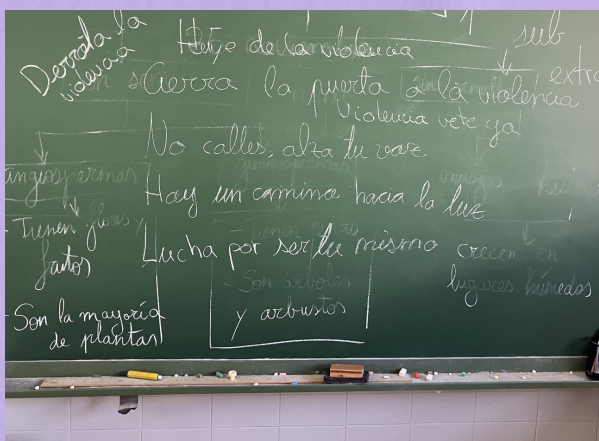 Derrota la
violencia
Huye de la violencia
sub
Cierra la puerta a la violencia
extra
Violencia vete ya!
No calles, alza tu voz.
angiospermas
musgos
Hay un camino hacia la luz
- Tienen flores y
frutos
- Tienen
Lucha por ser tu mismo
crecen en
lugares húmedos
- Son árboles
y arbustos
- Son la mayoría
de plantas